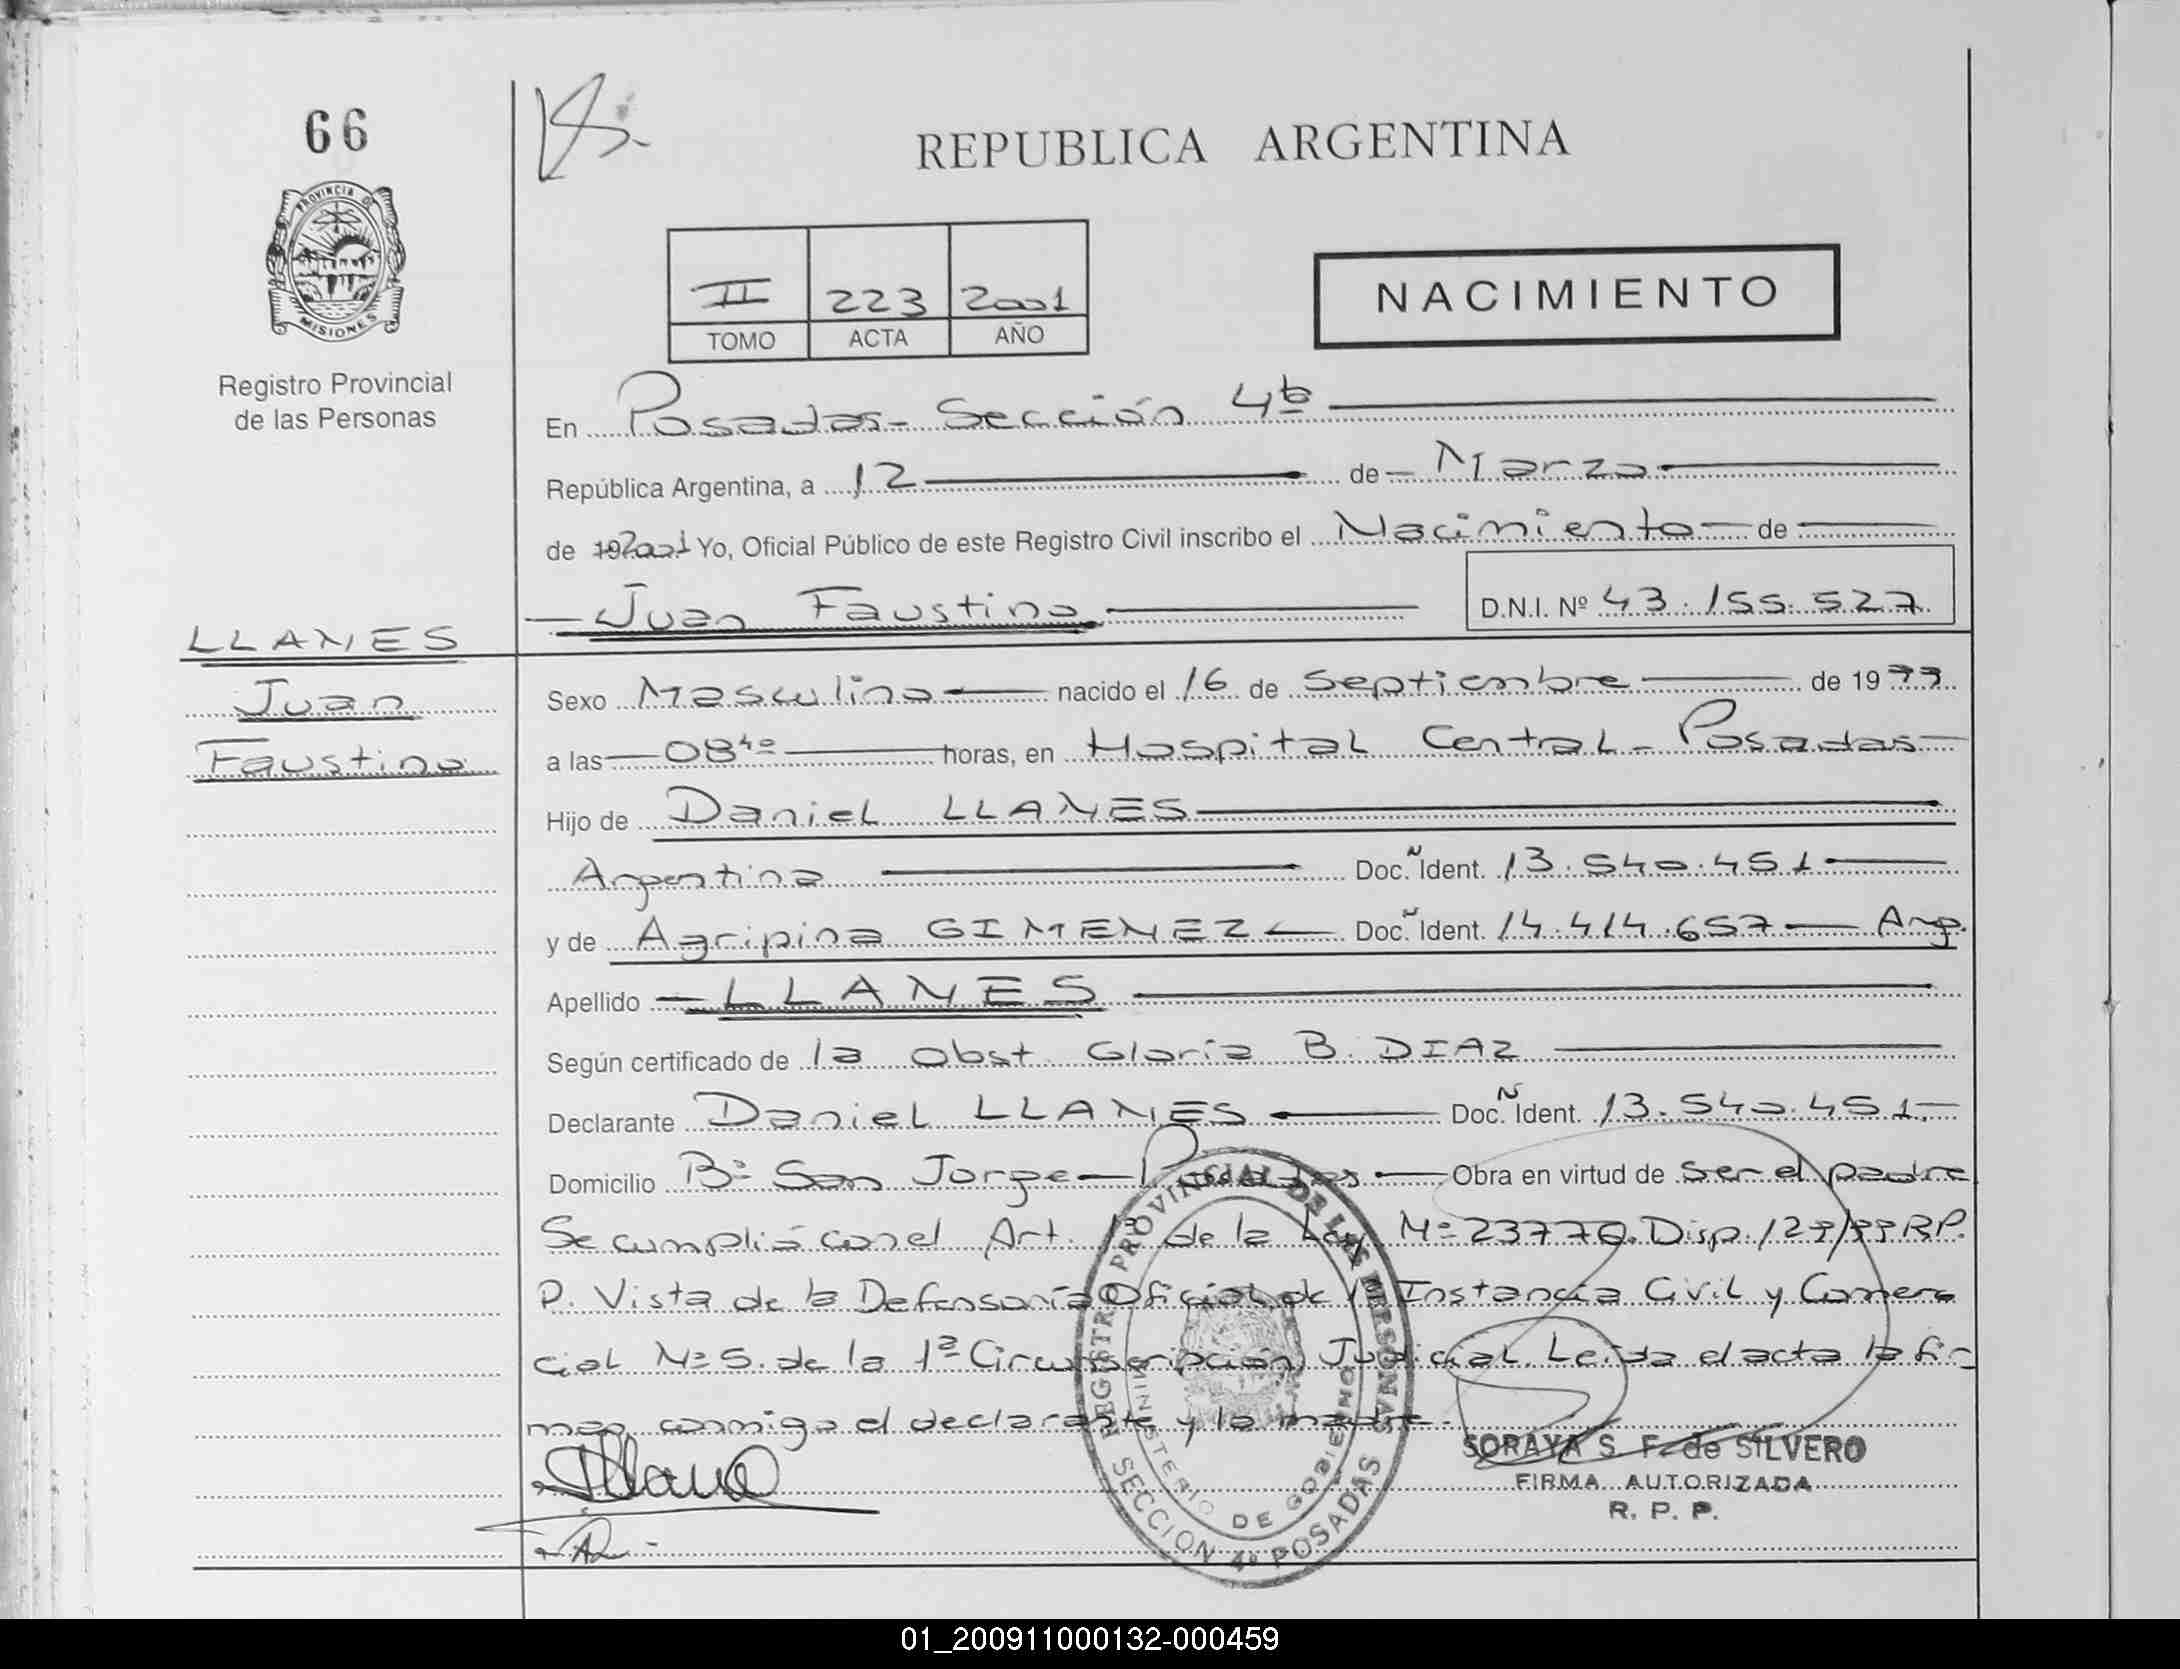 66
REPUBLICA ARGENTINA
PROVINCIA DE MISIONES
II 223 2001
TOMO ACTA AÑO
NACIMIENTO
Registro Provincial
de las Personas
En Posadas - Sección 4ta
República Argentina, a 12 de Marzo
de 192001 Yo, Oficial Público de este Registro Civil inscribo el Nacimiento de
Juan Faustino D.N.I. Nº 43.155.527
LLANES
Juan
Faustino
Sexo Masculino nacido el 16 de Septiembre de 1999
a las 08 40 horas, en Hospital Central - Posadas
Hijo de Daniel LLANES
Argentino Doc. Ident. 13.540.451
y de Agripina GIMENEZ Doc. Ident. 14.414.657 - Arg.
Apellido LLANES
Según certificado de la Obst. Gloria B. DIAZ
Declarante Daniel LLANES Doc. Ident. 13.540.451.-
Domicilio Bº San Jorge - Posadas Obra en virtud de ser el padre
Se cumplió con el Art. 1º de la Ley Nº 23776. Disp. 129/99 R.P.
P. Vista de la Defensoría Oficial de 1ª Instancia Civil y Comer
cial Nº 5. de la 1ª Circunscripción Judicial. Leída el acta la fir-
man conmigo el declarante y la madre.-
REGISTRO PROVINCIAL DE LAS PERSONAS
MINISTERIO DE GOBIERNO
SECCION 4ª POSADAS
SORAYA S. F. de SILVERO
FIRMA AUTORIZADA
R. P. P.
01_200911000132-000459